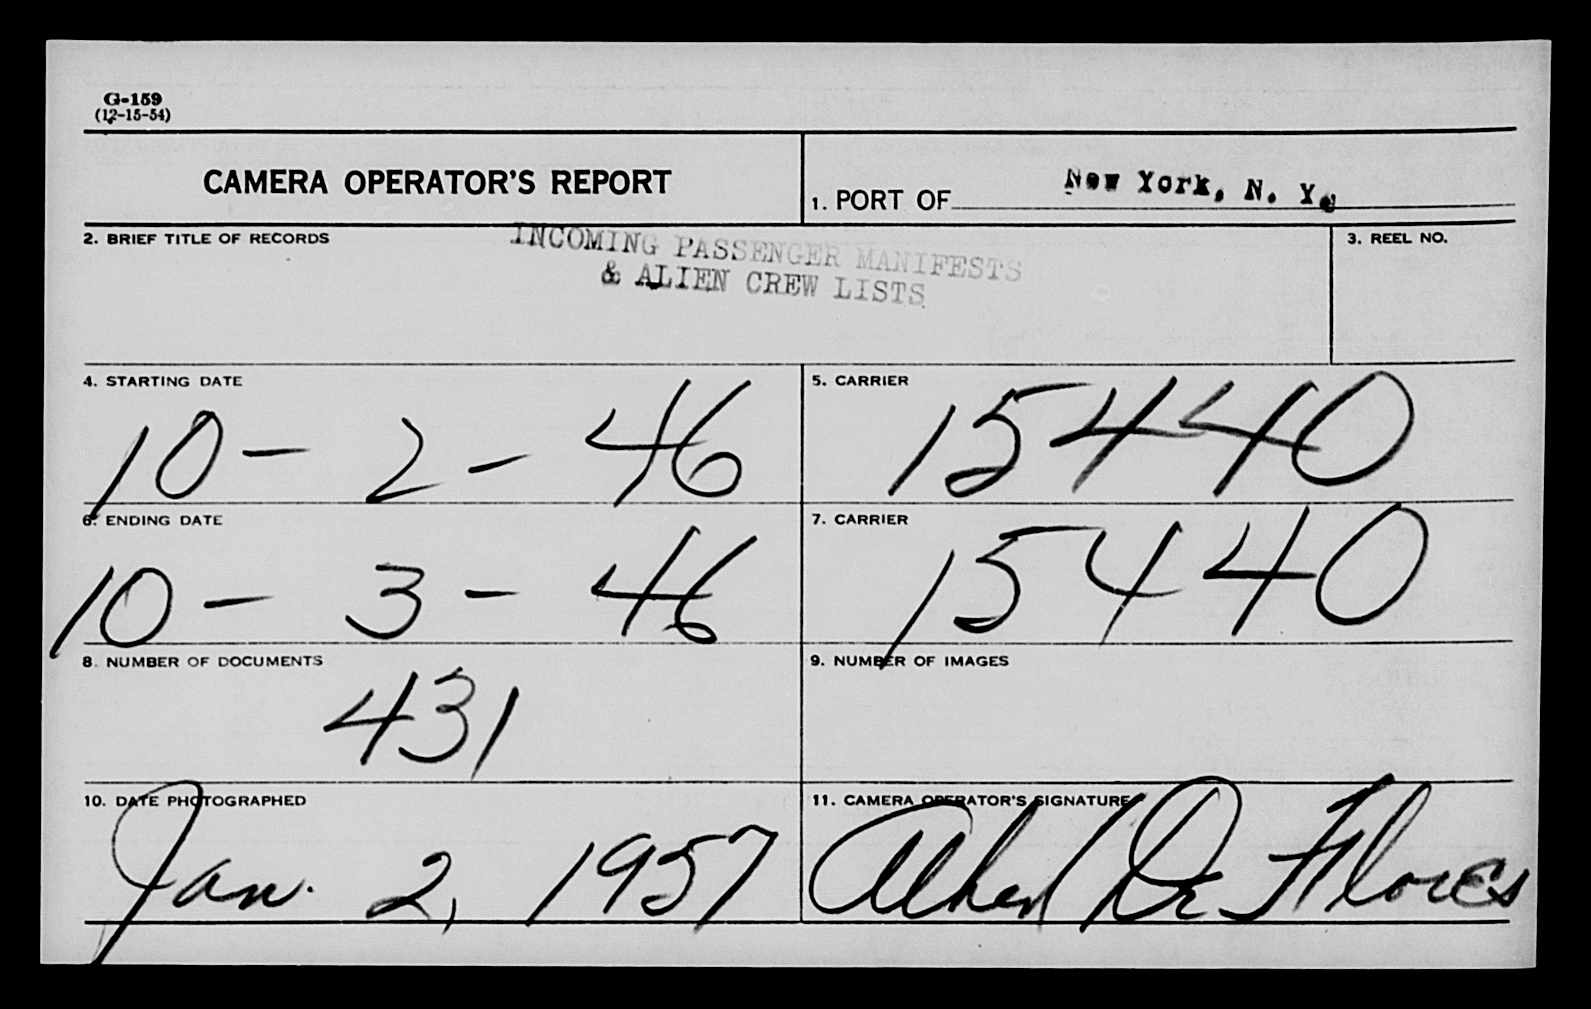 G-159
(12-15-54)
CAMERA OPERATOR'S REPORT
1. PORT OF New York, N. Y.
2. BRIEF TITLE OF RECORDS
INCOMING PASSENGER MANIFESTS
& ALIEN CREW LISTS
3. REEL NO.
4. STARTING DATE
10 - 2 - 46
5. CARRIER
15440
6. ENDING DATE
10 - 3 - 46
7. CARRIER
15440
8. NUMBER OF DOCUMENTS
431
9. NUMBER OF IMAGES
10. DATE PHOTOGRAPHED
Jan. 2, 1957
11. CAMERA OPERATOR'S SIGNATURE
Albert De Flores